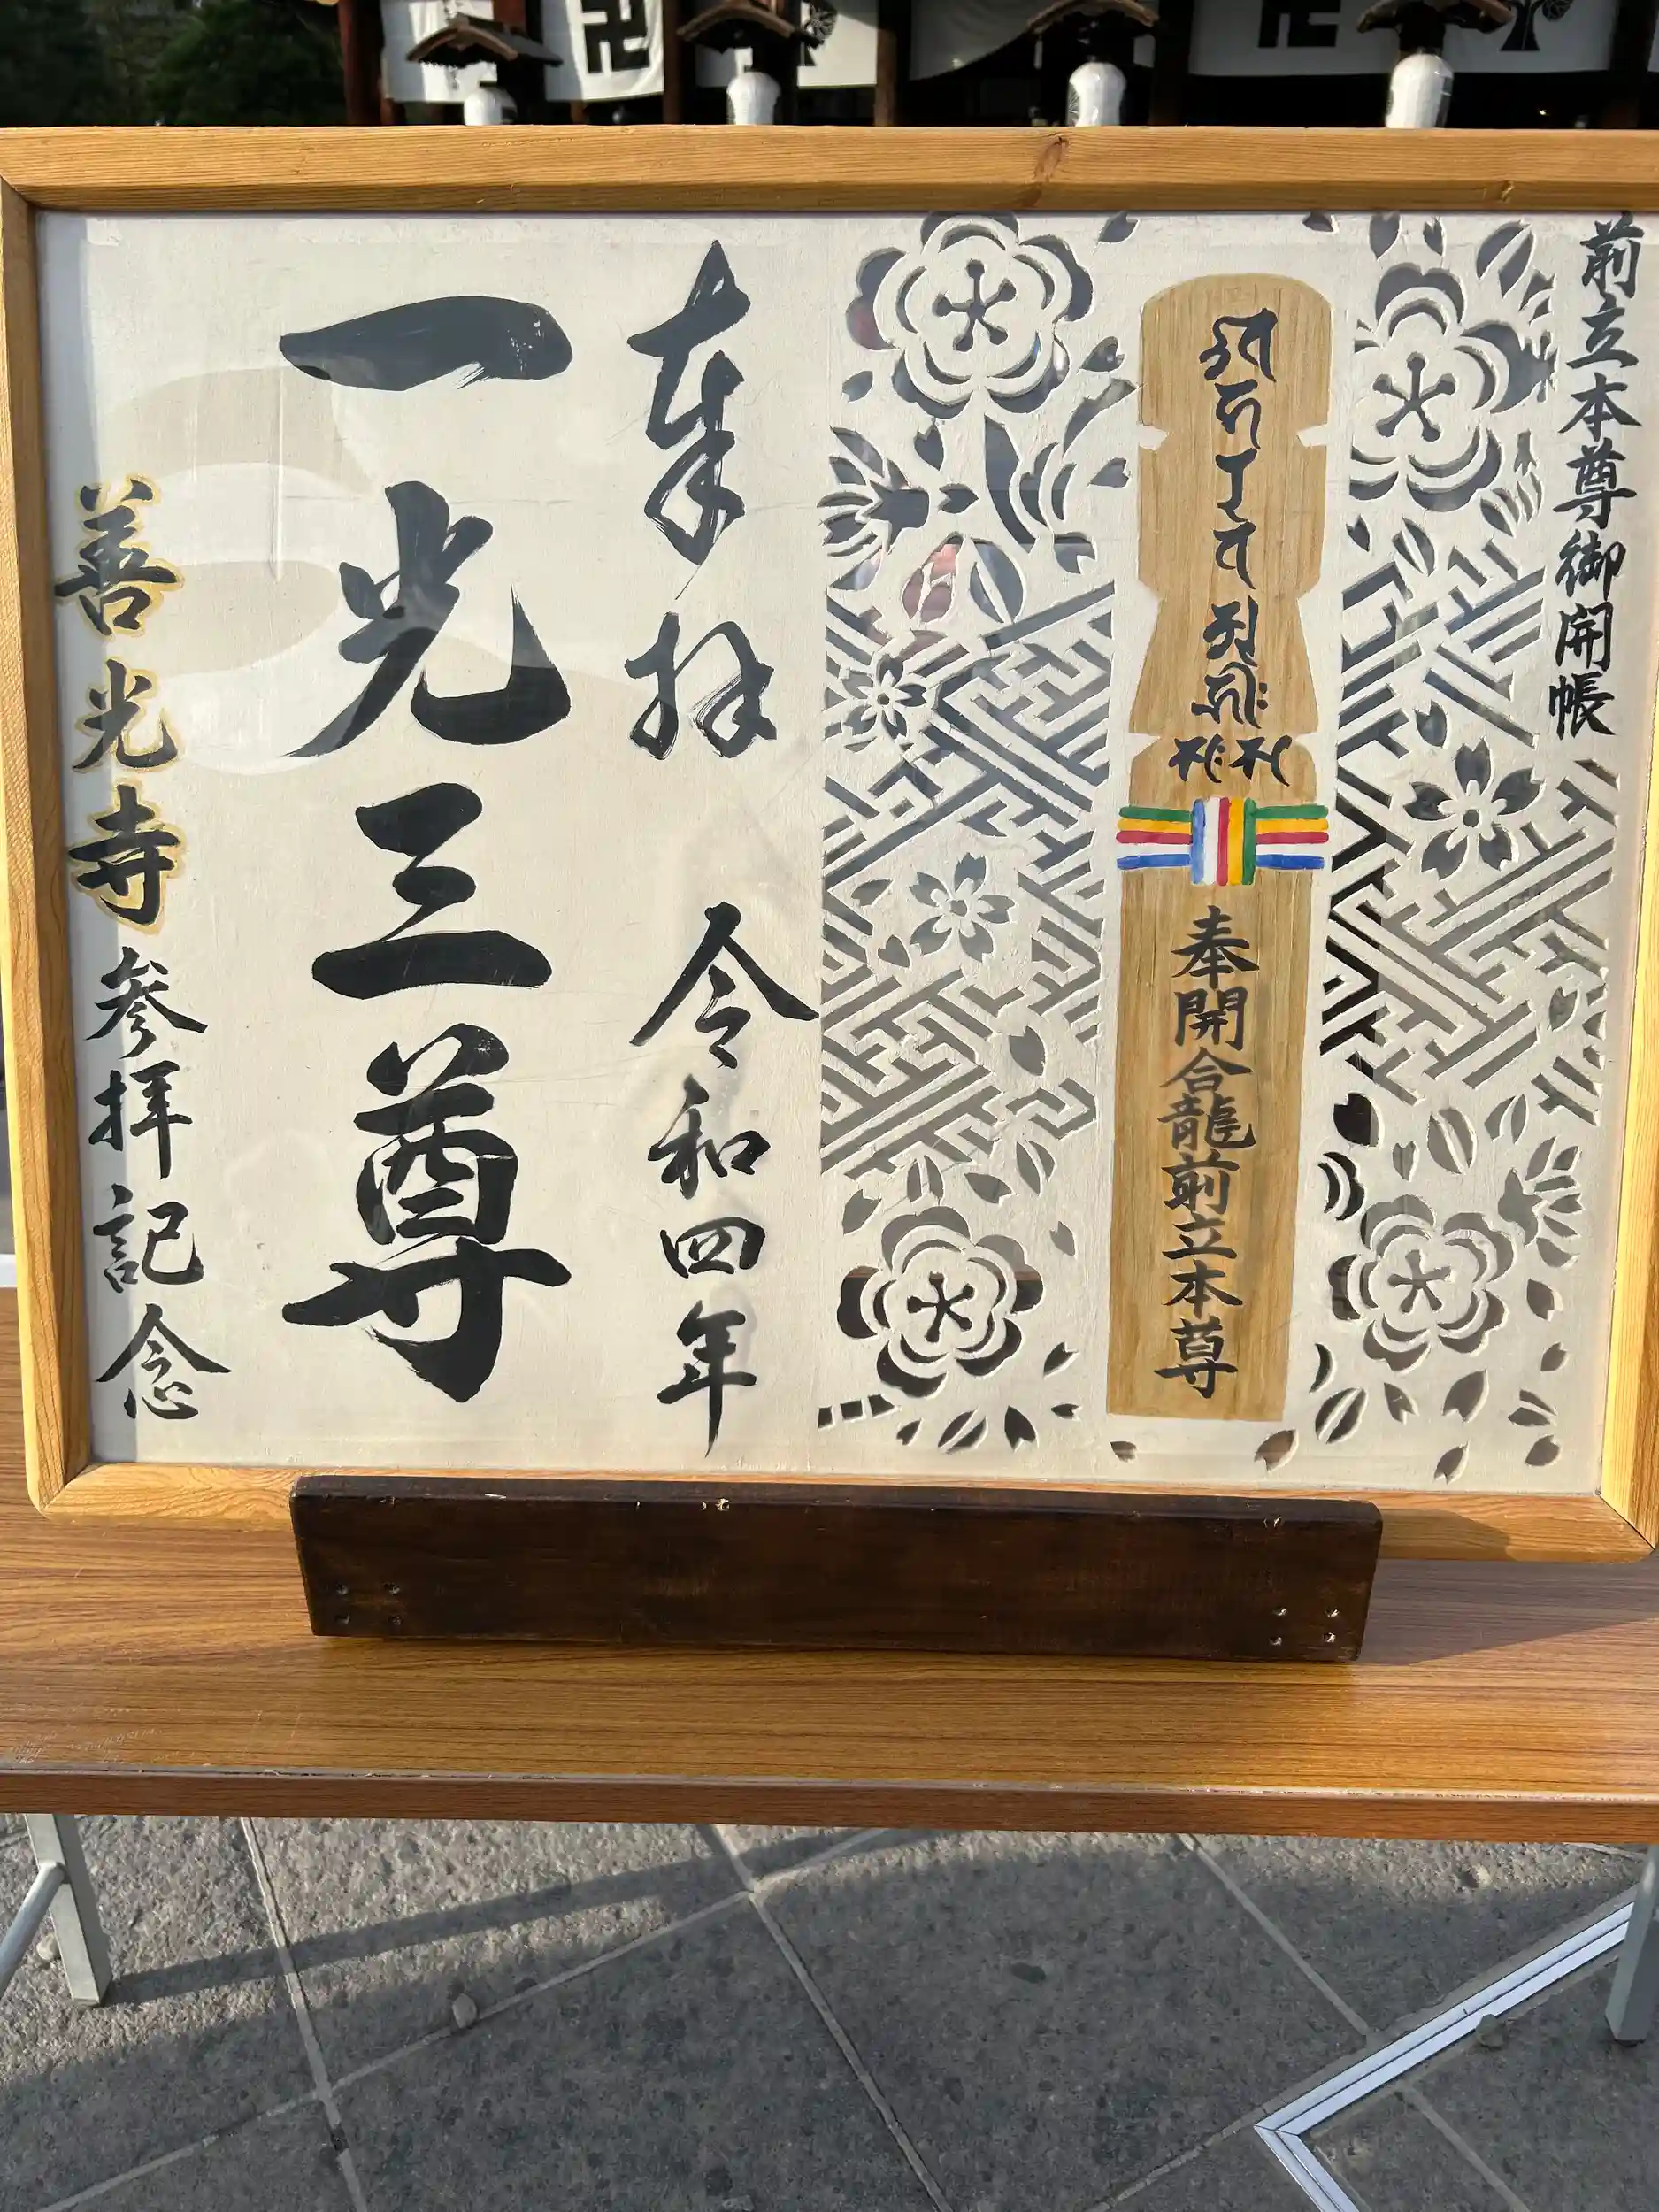 前立本尊御開帳
奉開合龍前立本尊
奉拝 令和四年
一光三尊
善光寺参拝記念